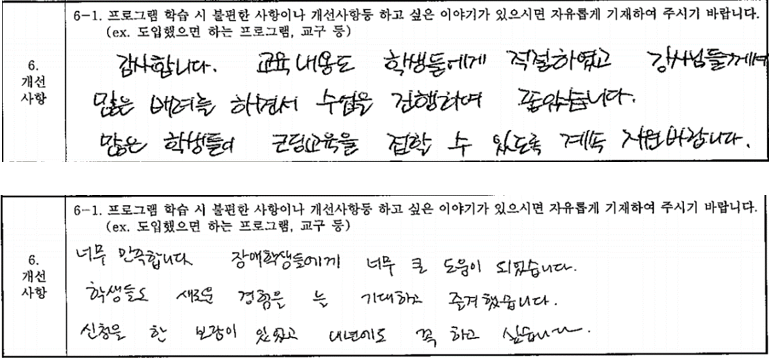 6-1. 프로그램 학습 시 불편한 사항이나 개선사항등 하고 싶은 이야기가 있으시면 자유롭게 기재하여 주시기 바랍니다.
(ex. 도입했으면 하는 프로그램, 교구 등)
6.
개선
사항
감사합니다. 교육내용도 학생들에게 적절하였고 강사님들께서
많은 배려를 하면서 수업을 진행하여 좋았습니다.
많은 학생들이 코딩교육을 접할 수 있도록 계속 지원바랍니다.
6-1. 프로그램 학습 시 불편한 사항이나 개선사항등 하고 싶은 이야기가 있으시면 자유롭게 기재하여 주시기 바랍니다.
(ex. 도입했으면 하는 프로그램, 교구 등)
6.
개선
사항
너무 만족합니다 장애학생들에게 너무 큰 도움이 되었습니다.
학생들도 새로운 경험을 늘 기대하고 즐겨했습니다.
신청을 한 보람이 있었고 내년에도 꼭 하고 싶습니다.